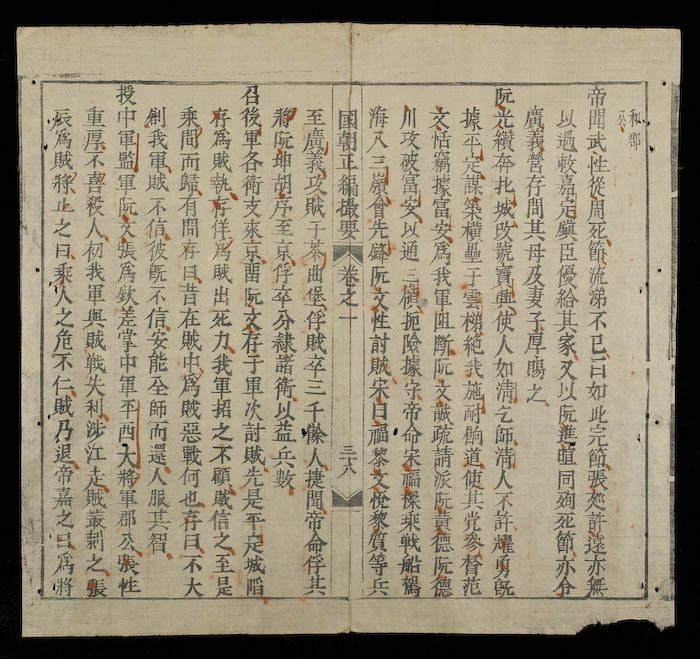 和郡
公
帝聞武性從周死節流涕不已曰如此完節張廵許遠亦無
以過敕嘉定鎮臣優給其家又以阮進暄同殉死節亦令
廣義營存問其母及妻子厚賜之
阮光纘奔北城改號寶興使人如清乞師清人不許耀勇旣
據平定謀築橫壘于雲梯絕我施耐餉道使其党參督范
文恬竊據富安爲我軍阻斷阮文誠疏請派阮黃德阮德
川攻破富安以通三嶺扼險據守帝命宋福樑乘戰船駕
海入三嶺會先鋒阮文性討賊宋曰福黎文悅黎質等兵
國朝正編撮要 卷之一 三八
至廣義攻賊于茶曲堡俘賊卒三千餘人捷聞帝命俘其
將阮坤胡序至京俘卒分隸諸衛以益兵數
召後軍各衛支來京畱阮文存于軍次討賊先是平定城陷
存爲賊執存佯爲賊出死力我軍招之不顧賊信之至是
乘間而歸有問存曰昔在賊中爲賊惡戰何也存曰不大
創我軍賊不信彼旣不信安能全師而還人服其智
授中軍監軍阮文張爲欽差掌中軍平西大將軍郡公張性
重厚不喜殺人初我軍與賊戰失利涉江走賊叢刺之張
辰爲賊將止之曰乘人之危不仁賊乃退帝嘉之曰爲將